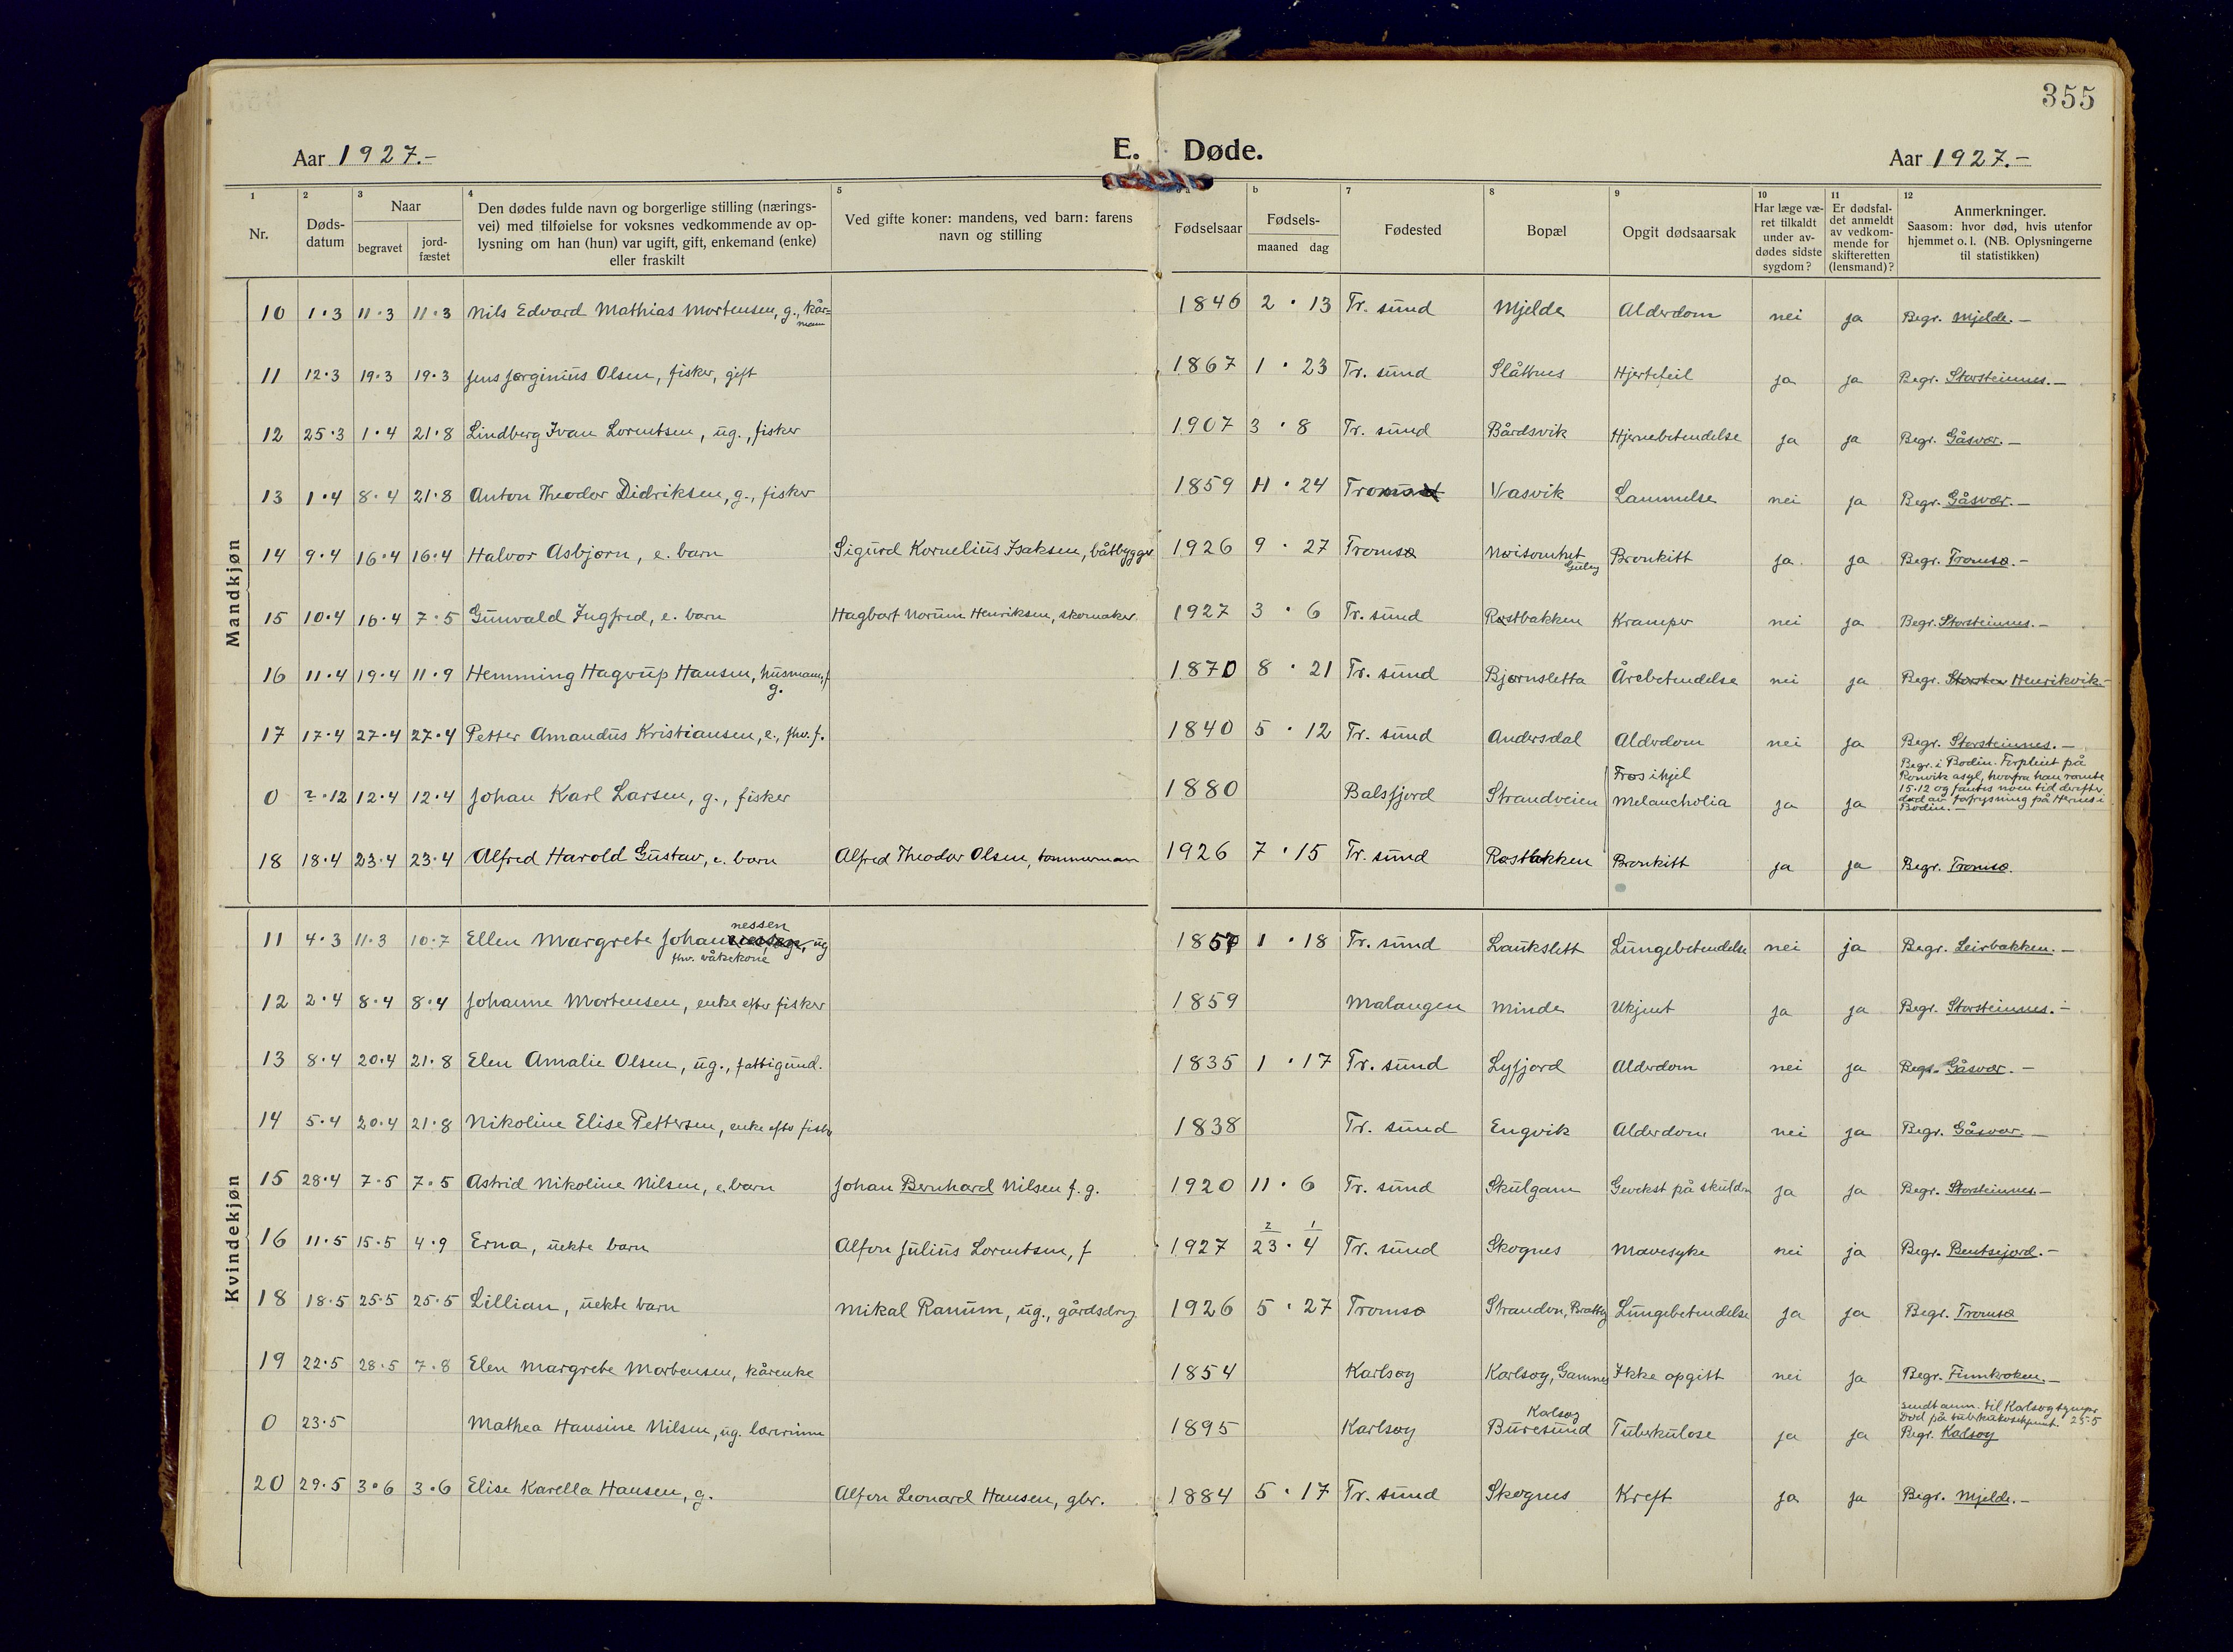 355
Aar 1927.-
E. Døde.
Aar 1927.-
1 2 3 4 5 6 a b 7 8 9 10 11 12
Nr.
Døds-
datum
Naar
begravet
jord-
fæstet
Den dødes fulde navn og borgerlige stilling (nærings-
vei) med tilføielse for voksnes vedkommende av op-
lysning om han (hun) var ugift, gift, enkemand (enke)
eller fraskilt
Ved gifte koner: mandens, ved barn: farens
navn og stilling
Fødselsaar
Fødsels-
maaned dag
Fødested
Bopæl
Opgit dødsaarsak
Har læge væ-
ret tilkaldt
under av-
dødes sidste
sygdom?
Er dødsfal-
det anmeldt
av vedkom-
mende for
skifteretten
(lensmand)?
Anmerkninger.
Saasom: hvor død, hvis utenfor
hjemmet o. l. (NB. Oplysningerne
til statistikken)
Mandkjøn
10 1·3 11·3 11·3 Nils Edvard Mathias Mortensen, g., kår=
mann 1846 2 · 13 Tr. sund Mjelde Alderdom nei ja Begr. Mjelde.-
11 12·3 19·3 19·3 Jens Jørginius Olsen, fisker, gift 1867 1 · 23 Tr. sund Slåttnes Hjertefeil ja ja Begr. Storsteinnes.-
12 25·3 1·4 21·8 Lindberg Ivan Lorentsen, ug., fisker 1907 3 · 8 Tr. sund Bårdsvik Hjernebetendelse ja ja Begr. Gåsvær.-
13 1·4 8·4 21·8 Anton Theodor Didriksen, g., fisker 1859 11 · 24 Vasvik Lammelse nei ja Begr. Gåsvær.-
14 9·4 16·4 16·4 Halvor Asbjørn, e. barn Sigurd Kornelius Isaksen, båtbygger 1926 9 · 27 Tromsø Nøisomhet Bronkitt ja ja Begr. Tromsø.-
15 10·4 16·4 7·5 Gunvald Ingfred, e. barn Hagbart Norum Henriksen, skomaker 1927 3 · 6 Tr. sund Røstbakken Kramper nei ja Begr. Storsteinnes.-
16 11·4 19·4 11·9 Hemming Hagerup Hansen, husmann, f
g. 1870 8 · 21 Tr. sund Bjørnsletta Årebetendelse nei ja Begr. Storsten Henrikvik.-
17 17·4 27·4 27·4 Petter Amandus Kristiansen, e., fhv. f. 1840 5 · 12 Tr. sund Andersdal Alderdom nei ja Begr. Storsteinnes.-
0 ?·12 12·4 12·4 Johan Karl Larsen, g., fisker 1880 Balsfjord Strandveien Frøs ihjel
Melancholia ja ja Begr. i Bodin. Forpleiet på
Rønvik asyl, hvorfra han rømte
15·12 og fantes noen tid derefter
død av forfrysning på Hernes i
Bodin.-
18 18·4 23·4 23·4 Alfred Harold Gustav, e. barn Alfred Theodor Olsen, tømmermann 1926 7 · 15 Tr. sund Røstbakken Bronkitt ja ja Begr. Tromsø.
Kvindekjøn
11 4·3 11·3 10·7 Ellen Margrete Johannessen, ug
fhv. våkekone 1857 1 · 18 Tr. sund Laukslett Lungebetendelse nei ja Begr. Leirbakken.-
12 2·4 8·4 8·4 Johanne Mortensen, enke efter fisker 1859 Malangen Minde Ukjent ja ja Begr. Storsteinnes.-
13 8·4 20·4 21·8 Elen Amalie Olsen, ug., fattigund. 1835 1 · 17 Tr. sund Lyfjord Alderdom nei ja Begr. Gåsvær.-
14 5·4 20·4 21·8 Nikoline Elise Pettersen, enke efter fisker 1838 Tr. sund Engvik Alderdom nei ja Begr. Gåsvær.-
15 28·4 7·5 7·5 Astrid Nikoline Nilsen, e. barn Johan Bernhard Nilsen f. g. 1920 11 · 6 Tr. sund Skulgam Gevekst på skulder ja ja Begr. Storsteinnes.-
16 11·5 15·5 4·9 Erna, uekte barn Alfon Julius Lorentsen, f 1927 2 1
23 · 4 Tr. sund Skognes Mavesyke nei ja Begr. Bentsjord.-
18 18·5 25·5 25·5 Lillian, uekte barn Mikal Ranum, ug., gårdsdrg. 1926 5 · 27 Tromsø Lungebetendelse ja ja Begr. Tromsø
19 22·5 28·5 7·8 Elen Margrete Mortensen, kårenke 1854 Karlsøy Karlsøy, Gamnes Ikke opgitt nei ja Begr. Finnkroken.-
0 23·5 Mathea Hansine Nilsen, ug. lærerinne 1895 Karlsøy Karlsøy
Buresund Tuberkulose ja ja sendt anm. til Karlsøy sognepr
Død på 25·5
Begr. Kalsøy
20 29·5 3·6 3·6 Elise Karella Hansen, g. Alfon Leonard Hansen, gbr. 1884 5 · 17 Tr. sund Skognes Kreft ja ja Begr. Mjelde.-